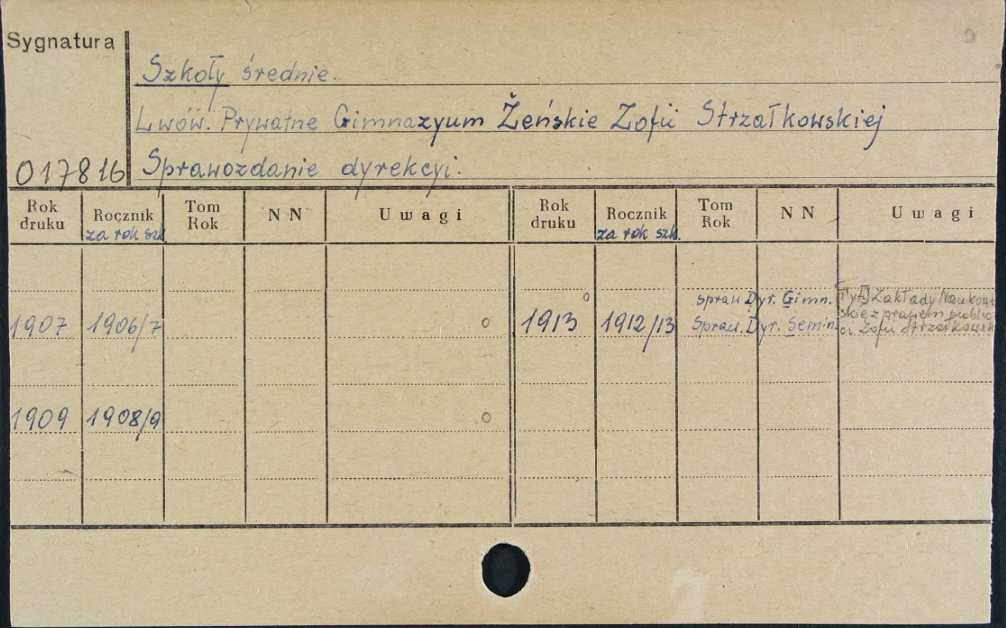 Sygnatura
Szkoły średnie.
Lwów. Prywatne Gimnazyum Żeńskie Zofii Strzałkowskiej
017816 Sprawozdanie dyrekcyi.
Rok druku Rocznik za rok szk. Tom Rok NN Uwagi Rok druku Rocznik za rok szk. Tom Rok NN Uwagi
spraw Dyr. Gimn. Zakłady Naukow
1907 1906/7 1913 1912/13 Spraw. Dyr. Semin. skie z prawem public
Zofii Strzałkowsk
1909 1908/9